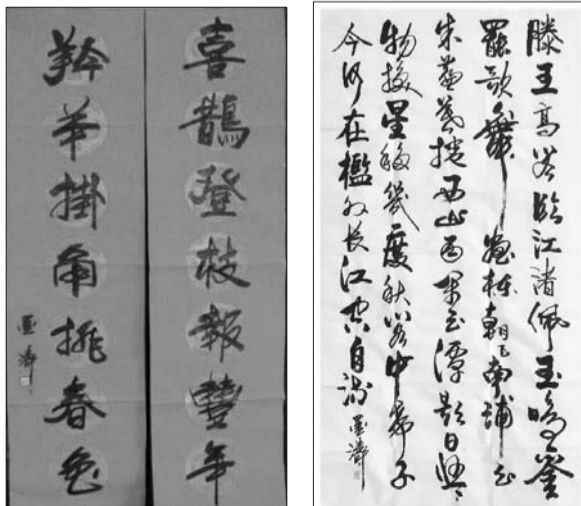 喜鵲登枝報豐年
羚羊掛角挑春色
墨濤
滕王高阁临江渚佩玉鸣銮
罷歌舞画栋朝飞南浦云
朱簾暮捲西山雨闲云潭影日悠悠
物换星移幾度秋阁中帝子
今何在檻外长江空自流
墨濤